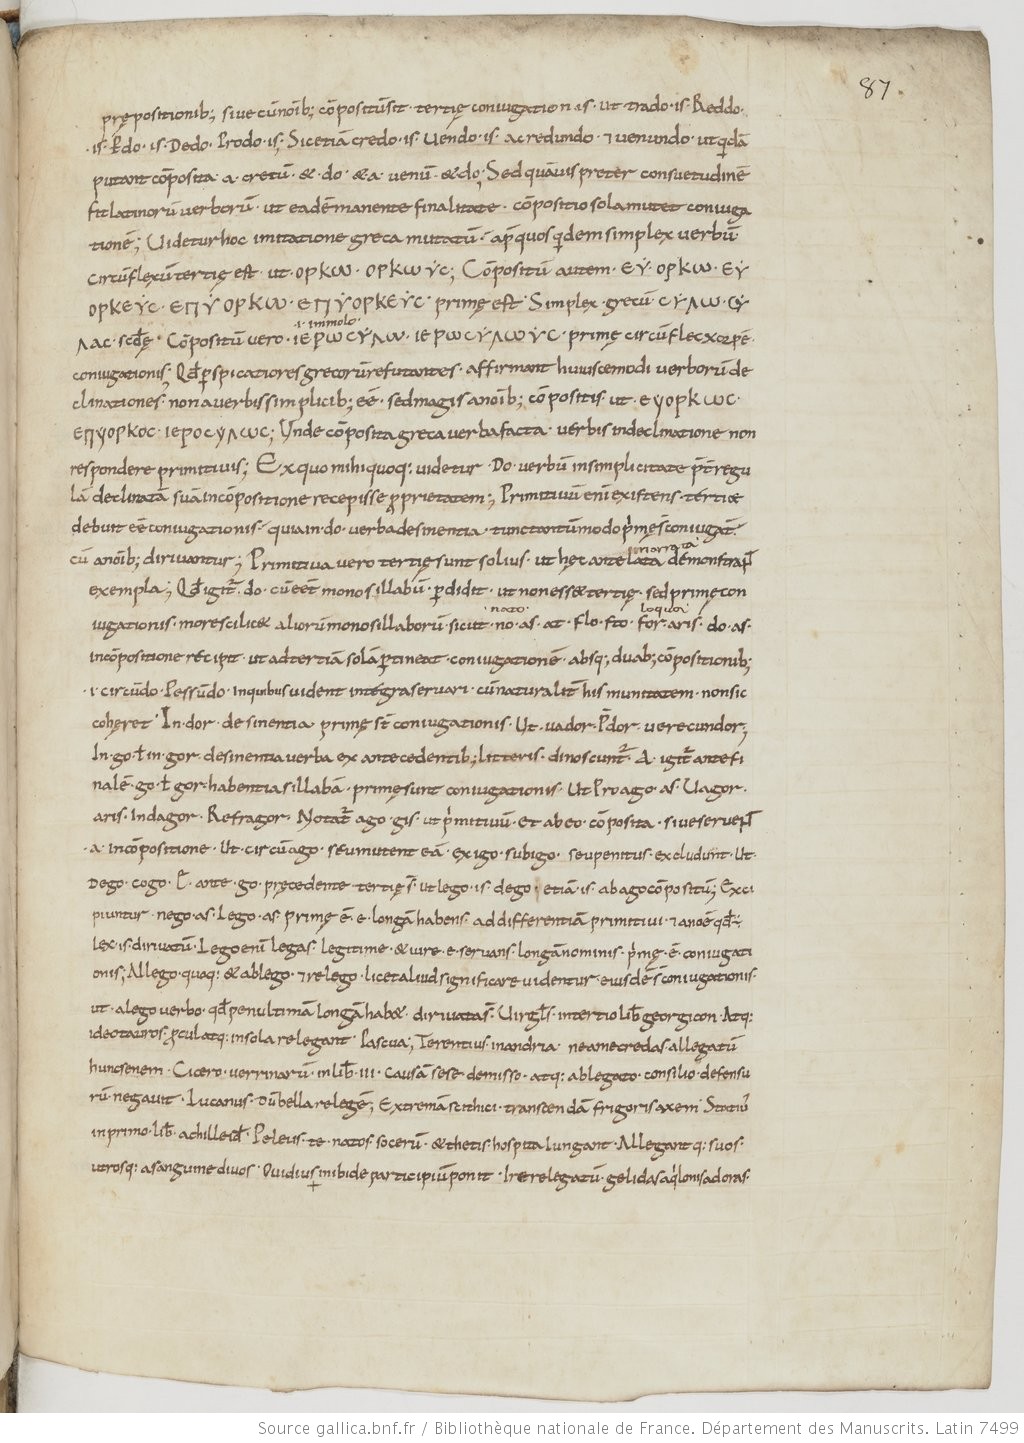 87.
prępositionib; sive cū noīb; cōpositū sit · tertię coniugationis · ut trado · is · Reddo ·
· is · P̄do · is · Dedo · Prodo · is; Sic etiā credo · is · Uendo · is · ac redundo · ⁊ venundo · ut qidā
putant cōposita · a · cretū · & · do · & a · venū · & do; Sed quāuis preter consuetudinē
fit latinorū verborū · ut eadē manente finalitate · cōpositio sola mutet coniuga
tionē; Uidetur hoc imitatione greca mutatū · ap̄ quos qidem simplex verbū
circūflexū tertię est · ut · ορκω · ορκωύς; Cōpositū autem · ευ · ορκω · εύ
ορκεύς · επύορκω · επύορκεύς · primę est · Simplex · grecū ϲύλω · ϲύ
λας · scdę · Cōpositū vero · ιερωϲύλω · ιερωϲύλωύϲ · primę circūflec
· i · immolo
coniugationis; Qđ pspicatiores grecorū refutantes · affirmant huiuscemodi verborū de
clinationes · non a verbis simplicib; eē · sed magis a noīb; cōpositis · ut · ευορκωϲ ·
επυορκοϲ · ιεροϲυλωϲ; Unde cōposita greca verba facta · verbis in declinatione non
respondere primitivis; Ex quo mihi quoq: videtur · Do · verbū in simplicitate pt regu
lā declinatā suā in cōpositione recepisse pprietatem; Primitivū enī existens · tertiae
debuit eē coniugationis · quia in · do · verba desinentia · tunc tantūmodo pmę s̄ coniugat̄ ·
cū a noīb; dirivantur; Primitiva vero tertię sunt solius · ut hęc ante lata demonstrant
narrata
exempla; Qđ igit̄ · do · cū eēt monosillabū · pdidit · ut non esset tertię · sed primę con
iugationis · more scilicet aliorū monosillaborū sicut · no · as · at · flo · fto · for · aris · do · as ·
· nato · loquor
in cōpositione recipit ut ad tertiā solā ptineat · coniugationē · absq; duab; cōpositionib;
· i · circūdo · Pessūdo · in quibus vident integra servari · cū naturalit̄ his munitatem · non sic
cohęret · In · dor · desinentia primę st̄ coniugationis · Ut · vador · P̄dor · verecundor;
In · go · ł in · gor · desinentia verba ex antecedentib; litteris · dinoscunt̄ · A · igit̄ ante fi
nalē · go · ł gor · habentia sillabā · primę sunt coniugationis · Ut Pro ago · as · Uagor ·
aris · Indagor · Refragor · Notat̄ ago · gis · ut pmitivū · Et ab eo cōposita · sive servent
· a · in cōpositione · Ut · circū ago · seu mutent eā · exigo · subigo · seu penitus excludunt · Ut ·
Dego · cogo · E · ante · go · pręcedente · tertię s̄ · ut lego · is · dego · etiā · is · ab ago cōpositū; Exci
piuntur · nego · as · Lego · as · primę ē · e · longā habens · ad differentiā primitivi · ⁊ a noē qđ ē
lex · is · dirivatū · Lego enī legas · legitime · & iure · e · servans · longā nominis · pmę · ē · coniugati
onis; Allego · quoq: · & ablego · ⁊ relego · licet aliud significare videntur · eiusdē s̄ coniugationis ·
ut · alego verbo · qđ penultimā longā habet · dirivata s̄ · Uirgls · in tertio lib georgicon · Atq:
ideo tauros · pcul atq: in sola relegant · Pascua; Terentius in andria · ne a me credas allegatū
hunc senem · Cicero · verrinarū · in lib · iii · causā sese demisso · atq: ablegato · consilio · defensu
rū negavit · Lucanus · Dū bella relegē; Extremā scithici · transcendā frigoris axem · Statius
in primo · lib · achilleid · Peleus · te · natos · socerū · & thetis hospita iungant · Allegant q: suos ·
utrosq: a sanguine divos · Ovidius in ibide participiū ponit · Ire relegatū · gelidas aqlonis ad oras ·
Source gallica.bnf.fr / Bibliothèque nationale de France. Département des Manuscrits. Latin 7499